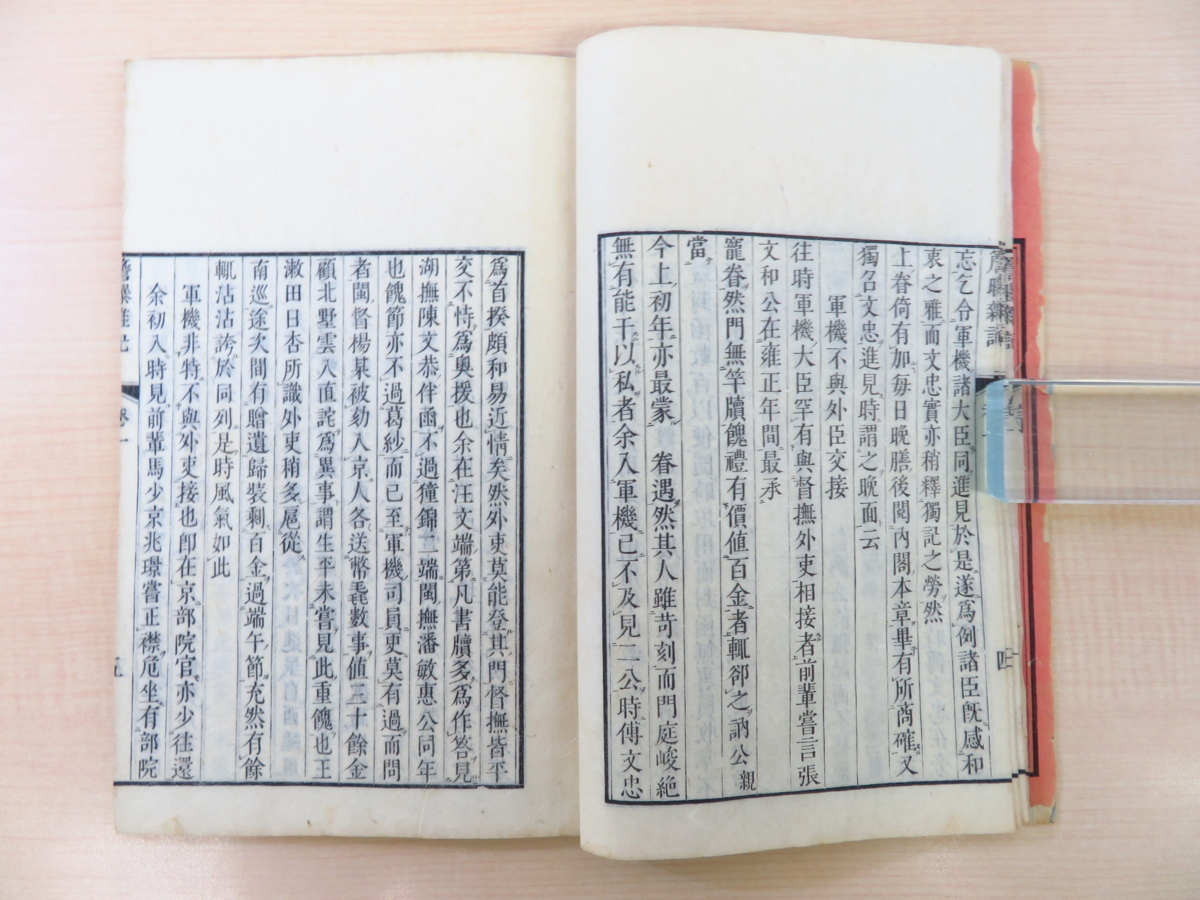 簷曝雜記
忘乞令軍機諸大臣同進見於是遂爲例諸臣旣感和
衷之雅而文忠實亦稍釋獨記之勞然
上眷倚有加每日晚膳後閱內閣本章畢有所商確又
獨召文忠進見時謂之晚面云
軍機不與外臣交接
往時軍機大臣罕有與督撫外吏相接者前輩嘗言張
文和公在雍正年間最承
寵眷然門無竿牘餽禮有價値百金者輒卻之訥公親
當
今上初年亦最蒙　眷遇然其人雖苛刻而門庭峻絕
無有能干以私者余入軍機已不及見二公時傅文忠
四
爲首揆頗和易近情矣然外吏莫能登其門督撫皆平
交不恃爲奧援也余在汪文端第凡書牘多爲作答見
湖撫陳文恭伴函不過獞錦二端閩撫潘敏惠公同年
也餽節亦不過葛紗而已至軍機司員更莫有過而問
者閩督楊某被劾入京人各送幣毳數事値三十餘金
顧北墅雲入直詫爲異事謂生平未嘗見此重餽也王
漱田日杏所識外吏稍多扈從
南巡途次間有贈遺歸裝剩百金過端午節充然有餘
輒沾沾誇於同列是時風氣如此
軍機非特不與外吏接也卽在京部院官亦少往還
余初入時見前輩馬少京兆璟嘗正襟危坐有部院
簷曝雜記
卷一
五